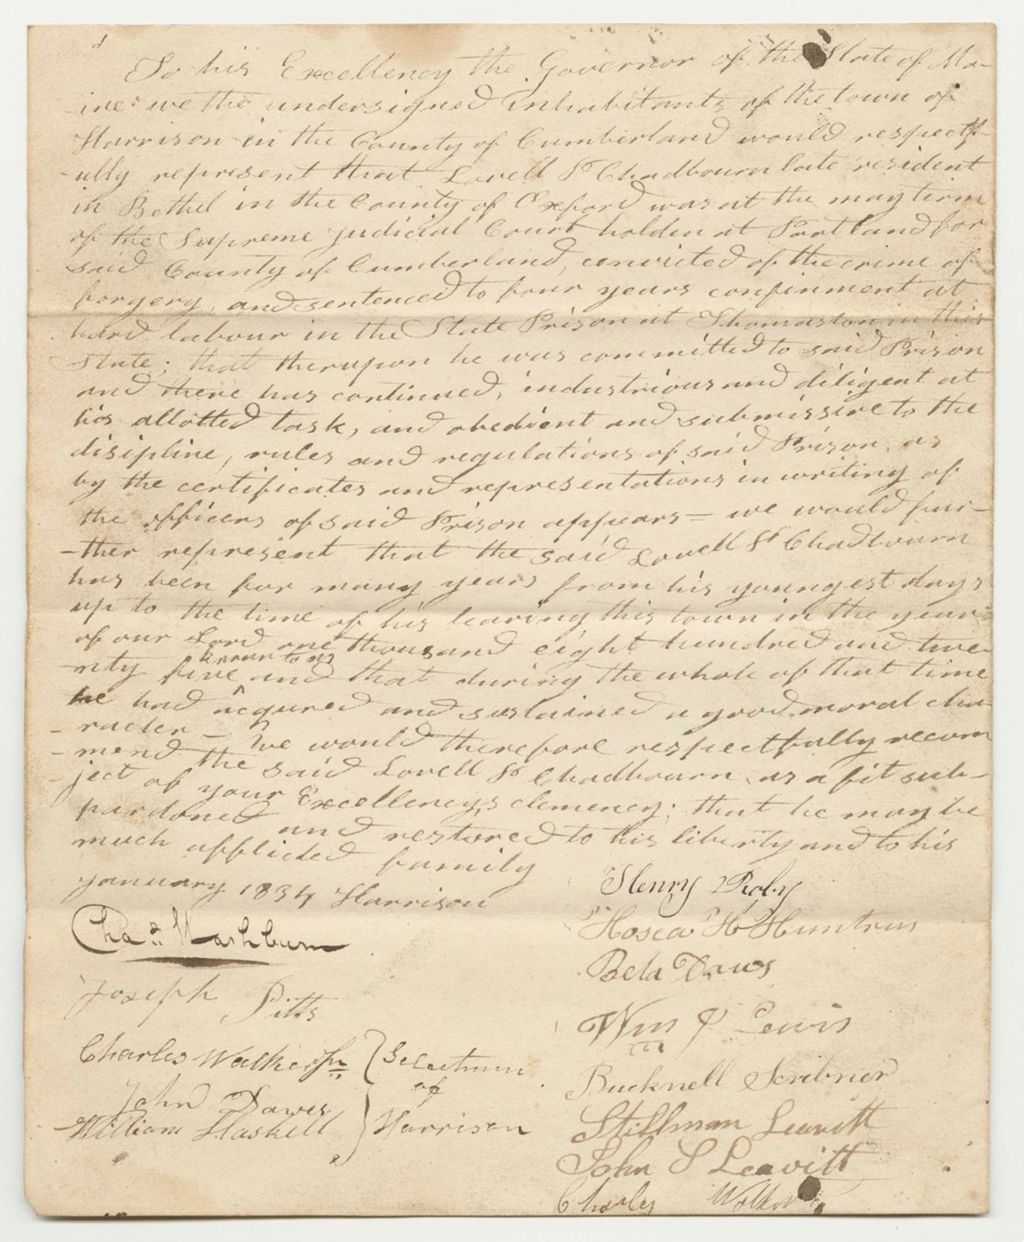 To his Excellency the Governor of the State of Ma-
ine: we the undersigned inhabitants of the town of
Harrison in the County of Cumberland would respectf-
-ully represent that Lovell St Chadbourn late resident
in Bethel in the County of Oxford was at the may term
of the Supreme Judicial Court holden at Portland for
said County of Cumberland, convicted of the crime of
forgery, and sentenced to four years confinment at
hard labour in the State Prison at Thomaston in this
State; that therupon he was committed to said Prison
and there has continued, industrious and diligent at
his allotted task, and obedient and submissive to the
disipline, rules and regulations of said Prison, as
by the certificates and representations in writing of
the officers of said Prison appears = we would fur-
-ther represent that the said Lovell St Chadbourn
has been for many years from his youngest days
up to the time of his leaving this town in the year
of our Lord one thousand eight hundred and twe-
-nty five and that during the whole of that time
he had acqured and sustained a good moral cha-
-racter - We would therefore respectfully recom
-mend the said Lovell St Chadbourn as a fit sub-
-ject of your Excellencys clemency; that he may be
pardoned and restored to his liberty and to his
much afflicted family
January 1834 Harrison
Henry Roby
Chas. Washburn
Hosea H Huntrus
Bela Daws
Joseph Pitts
Wm P Lewis
Charles Walker Jr Selectmen
of
Bucknell Scribner
John Dawes
William Haskell Harrison
Stillman Leavitt
John S Leavitt
Charles Walker